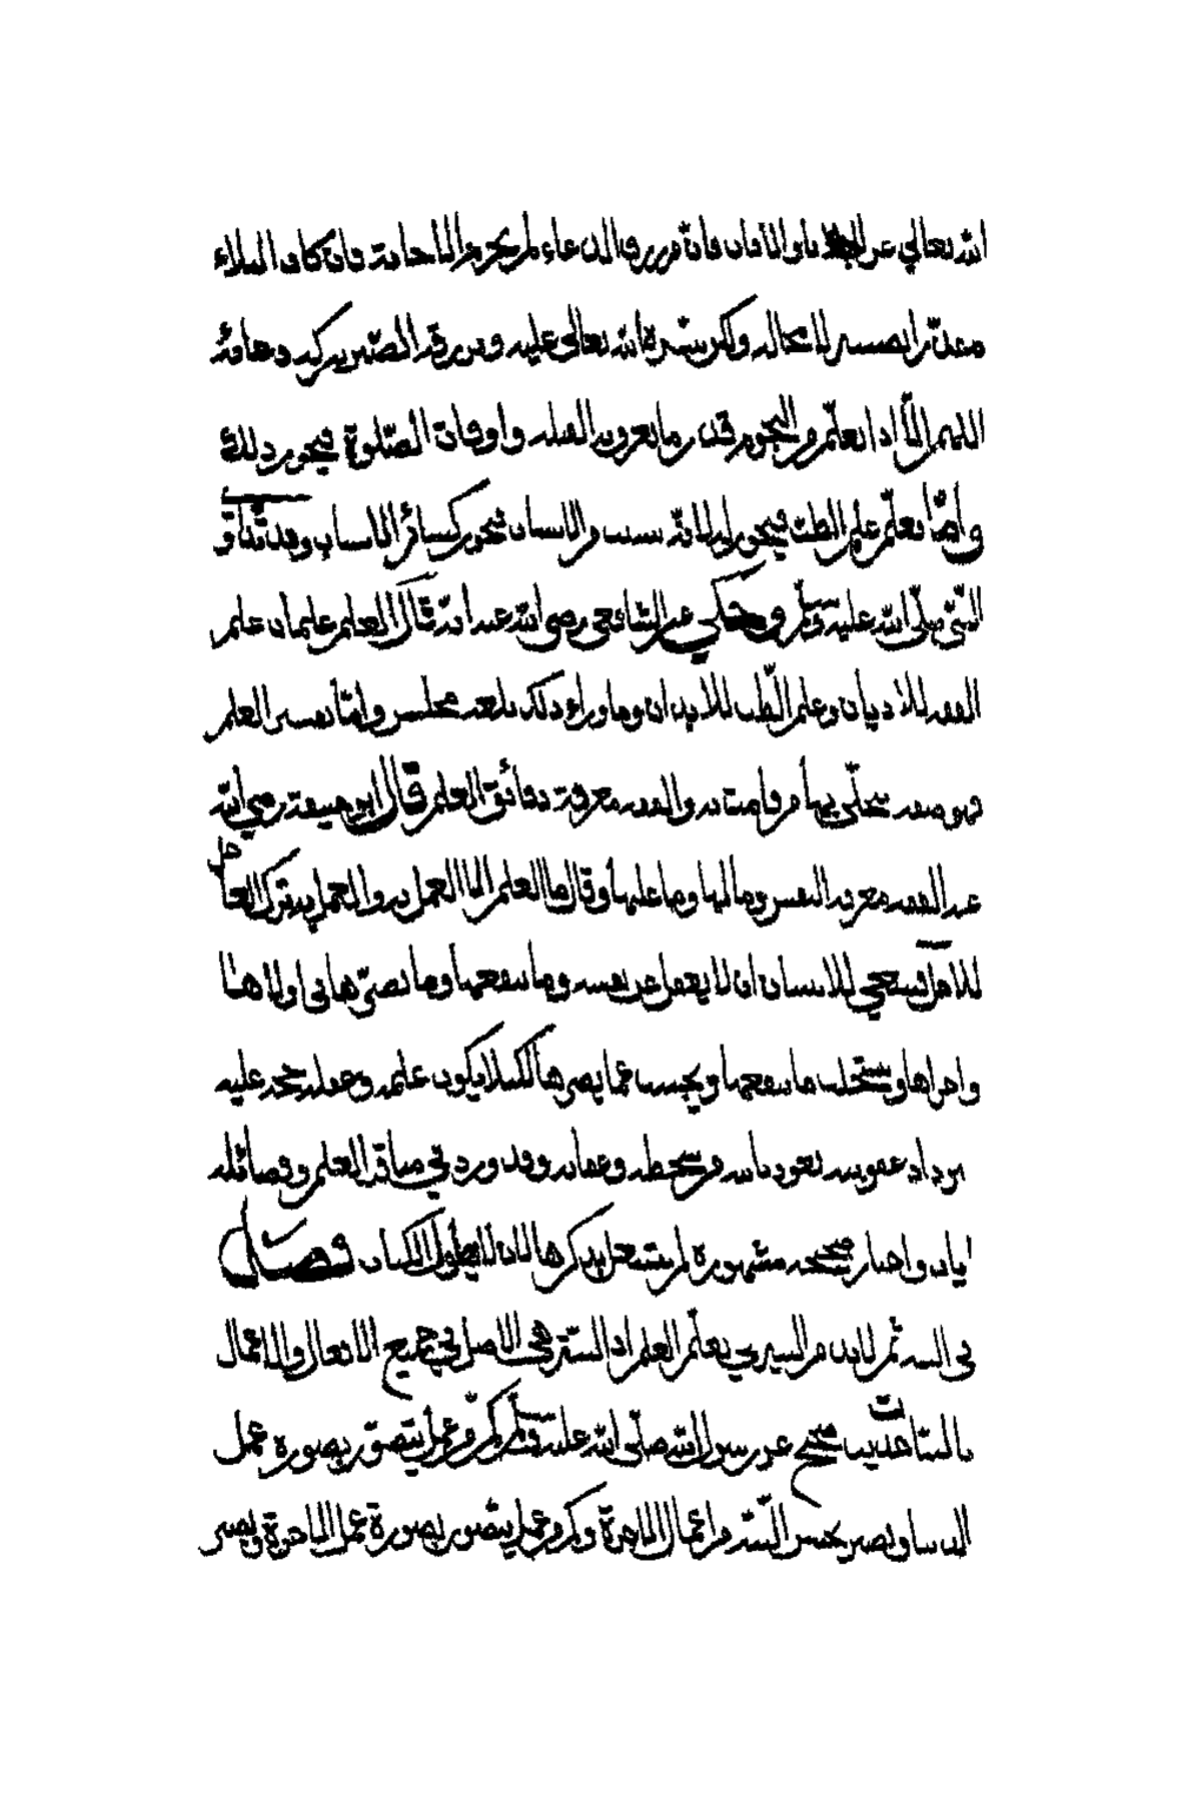 الله تعالي عن البلاء والآفات فان من رزق الدعاء لم يحرم الاجابة فان كان البلاء
مقدرا يصيبه لا محالة ولكن ييسره الله تعالى عليه ويرزقه الصبر ببركة دعائه
اللهم الا اذا تعلم من النجوم قدر ما يعرف به القبلة واوقات الصلوة فيجوز ذلك
واما تعلم علم الطب فيجوز لانه سبب من الاسباب فيجوز كسائر الاسباب وقد تداوى
النبي صلى الله عليه وسلم وحكي عن الشافعي رضي الله عنه انه قال العلم علمان علم
الفقه للاديان وعلم الطب للابدان وما وراء ذلك بلغة مجلس واما تفسير العلم
فهو صفة يتجلى بها من قامت به والفقه معرفة دقائق العلم قال ابو حنيفة رضي الله
عنه الفقه معرفة النفس ما لها وما عليها وقال ما العلم الا العمل به والعمل به ترك العاجل
للآجل فينبغي للانسان ان لا يغفل عن نفسه وما ينفعها وما يضرها في اولاها
واخراها ويستجلب ما ينفعها ويجتنب عما يضرها كيلا يكون علمه وعقله حجة عليه
يزداد عقوبة نعوذ بالله من سخطه وعقابه وقد ورد في مناقب العلم وفضائله
ايات واخبار صحيحة مشهورة لم نشتغل بذكرها لان لا يطول الكتاب فصل
في النية ثم لا بد من النية في تعلم العلم اذ النية هي الاصل في جميع الافعال والاعمال
بالنيات حديث صحيح عن رسول الله صلى الله عليه وسلم كم من عمل يتصور بصورة عمل
الدنيا ويصير بحسن النية من اعمال الاخرة وكم من عمل يتصور بصورة عمل الاخرة ويصير